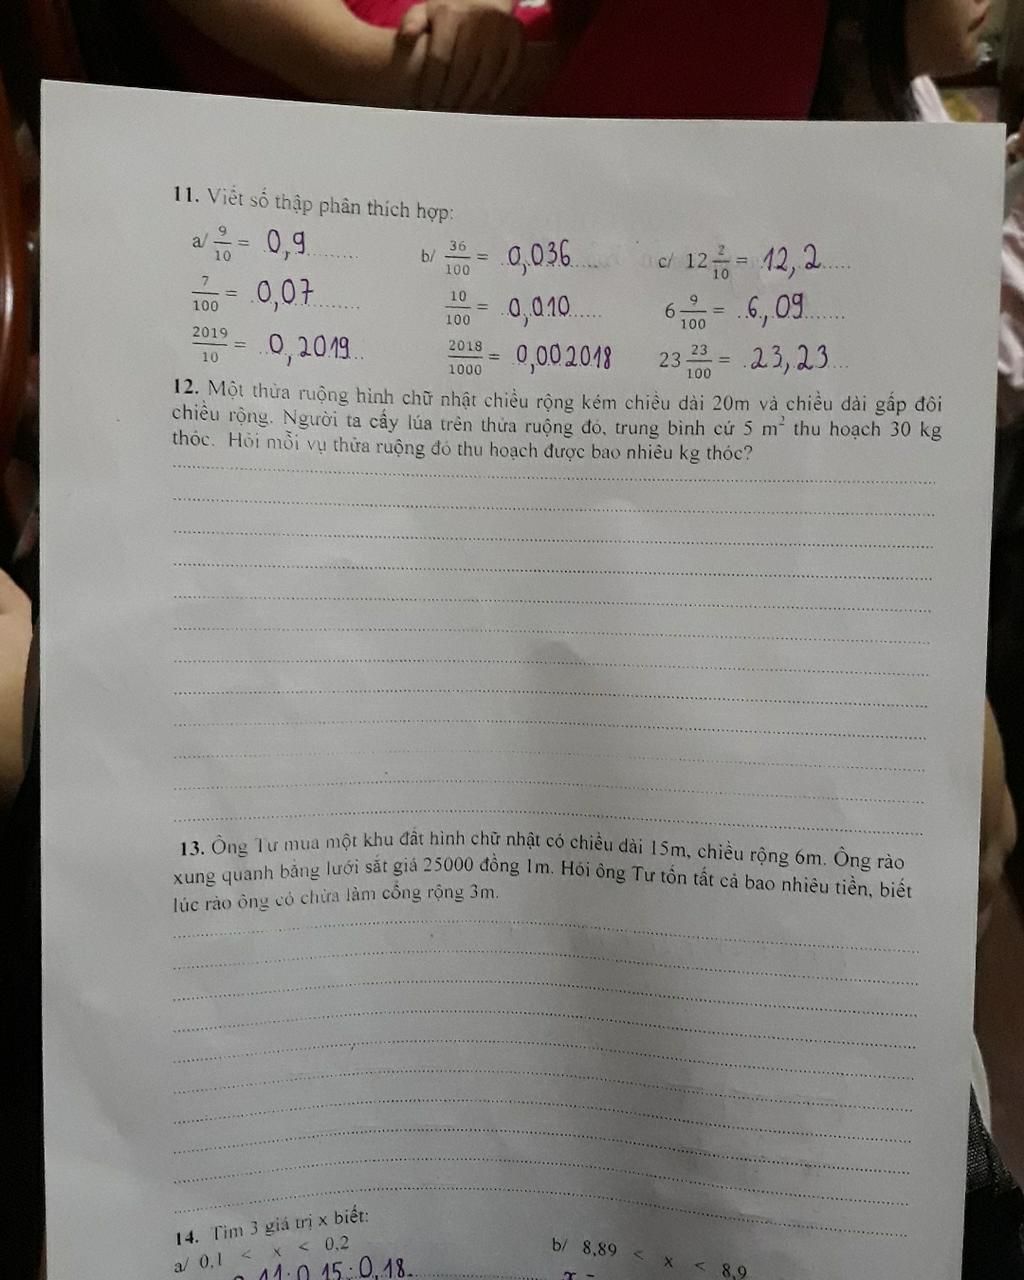 11. Viết số thập phân thích hợp:
a/ 9/10 = 0,9 b/ 36/100 = 0,036 c/ 12 2/10 = 12,2
7/100 = 0,07 10/100 = 0,010 6 9/100 = 6,09
2019/10 = 0,2019 2018/1000 = 0,002018 23 23/100 = 23,23
12. Một thửa ruộng hình chữ nhật chiều rộng kém chiều dài 20m và chiều dài gấp đôi
chiều rộng. Người ta cấy lúa trên thửa ruộng đó, trung bình cứ 5 m² thu hoạch 30 kg
thóc. Hỏi mỗi vụ thửa ruộng đó thu hoạch được bao nhiêu kg thóc?
13. Ông Tư mua một khu đất hình chữ nhật có chiều dài 15m, chiều rộng 6m. Ông rào
xung quanh bằng lưới sắt giá 25000 đồng 1m. Hỏi ông Tư tốn tất cả bao nhiêu tiền, biết
lúc rào ông có chừa làm cổng rộng 3m.
14. Tìm 3 giá trị x biết:
a/ 0,1 < x < 0,2 b/ 8,89 < x < 8,9
11; 0,15; 0,18